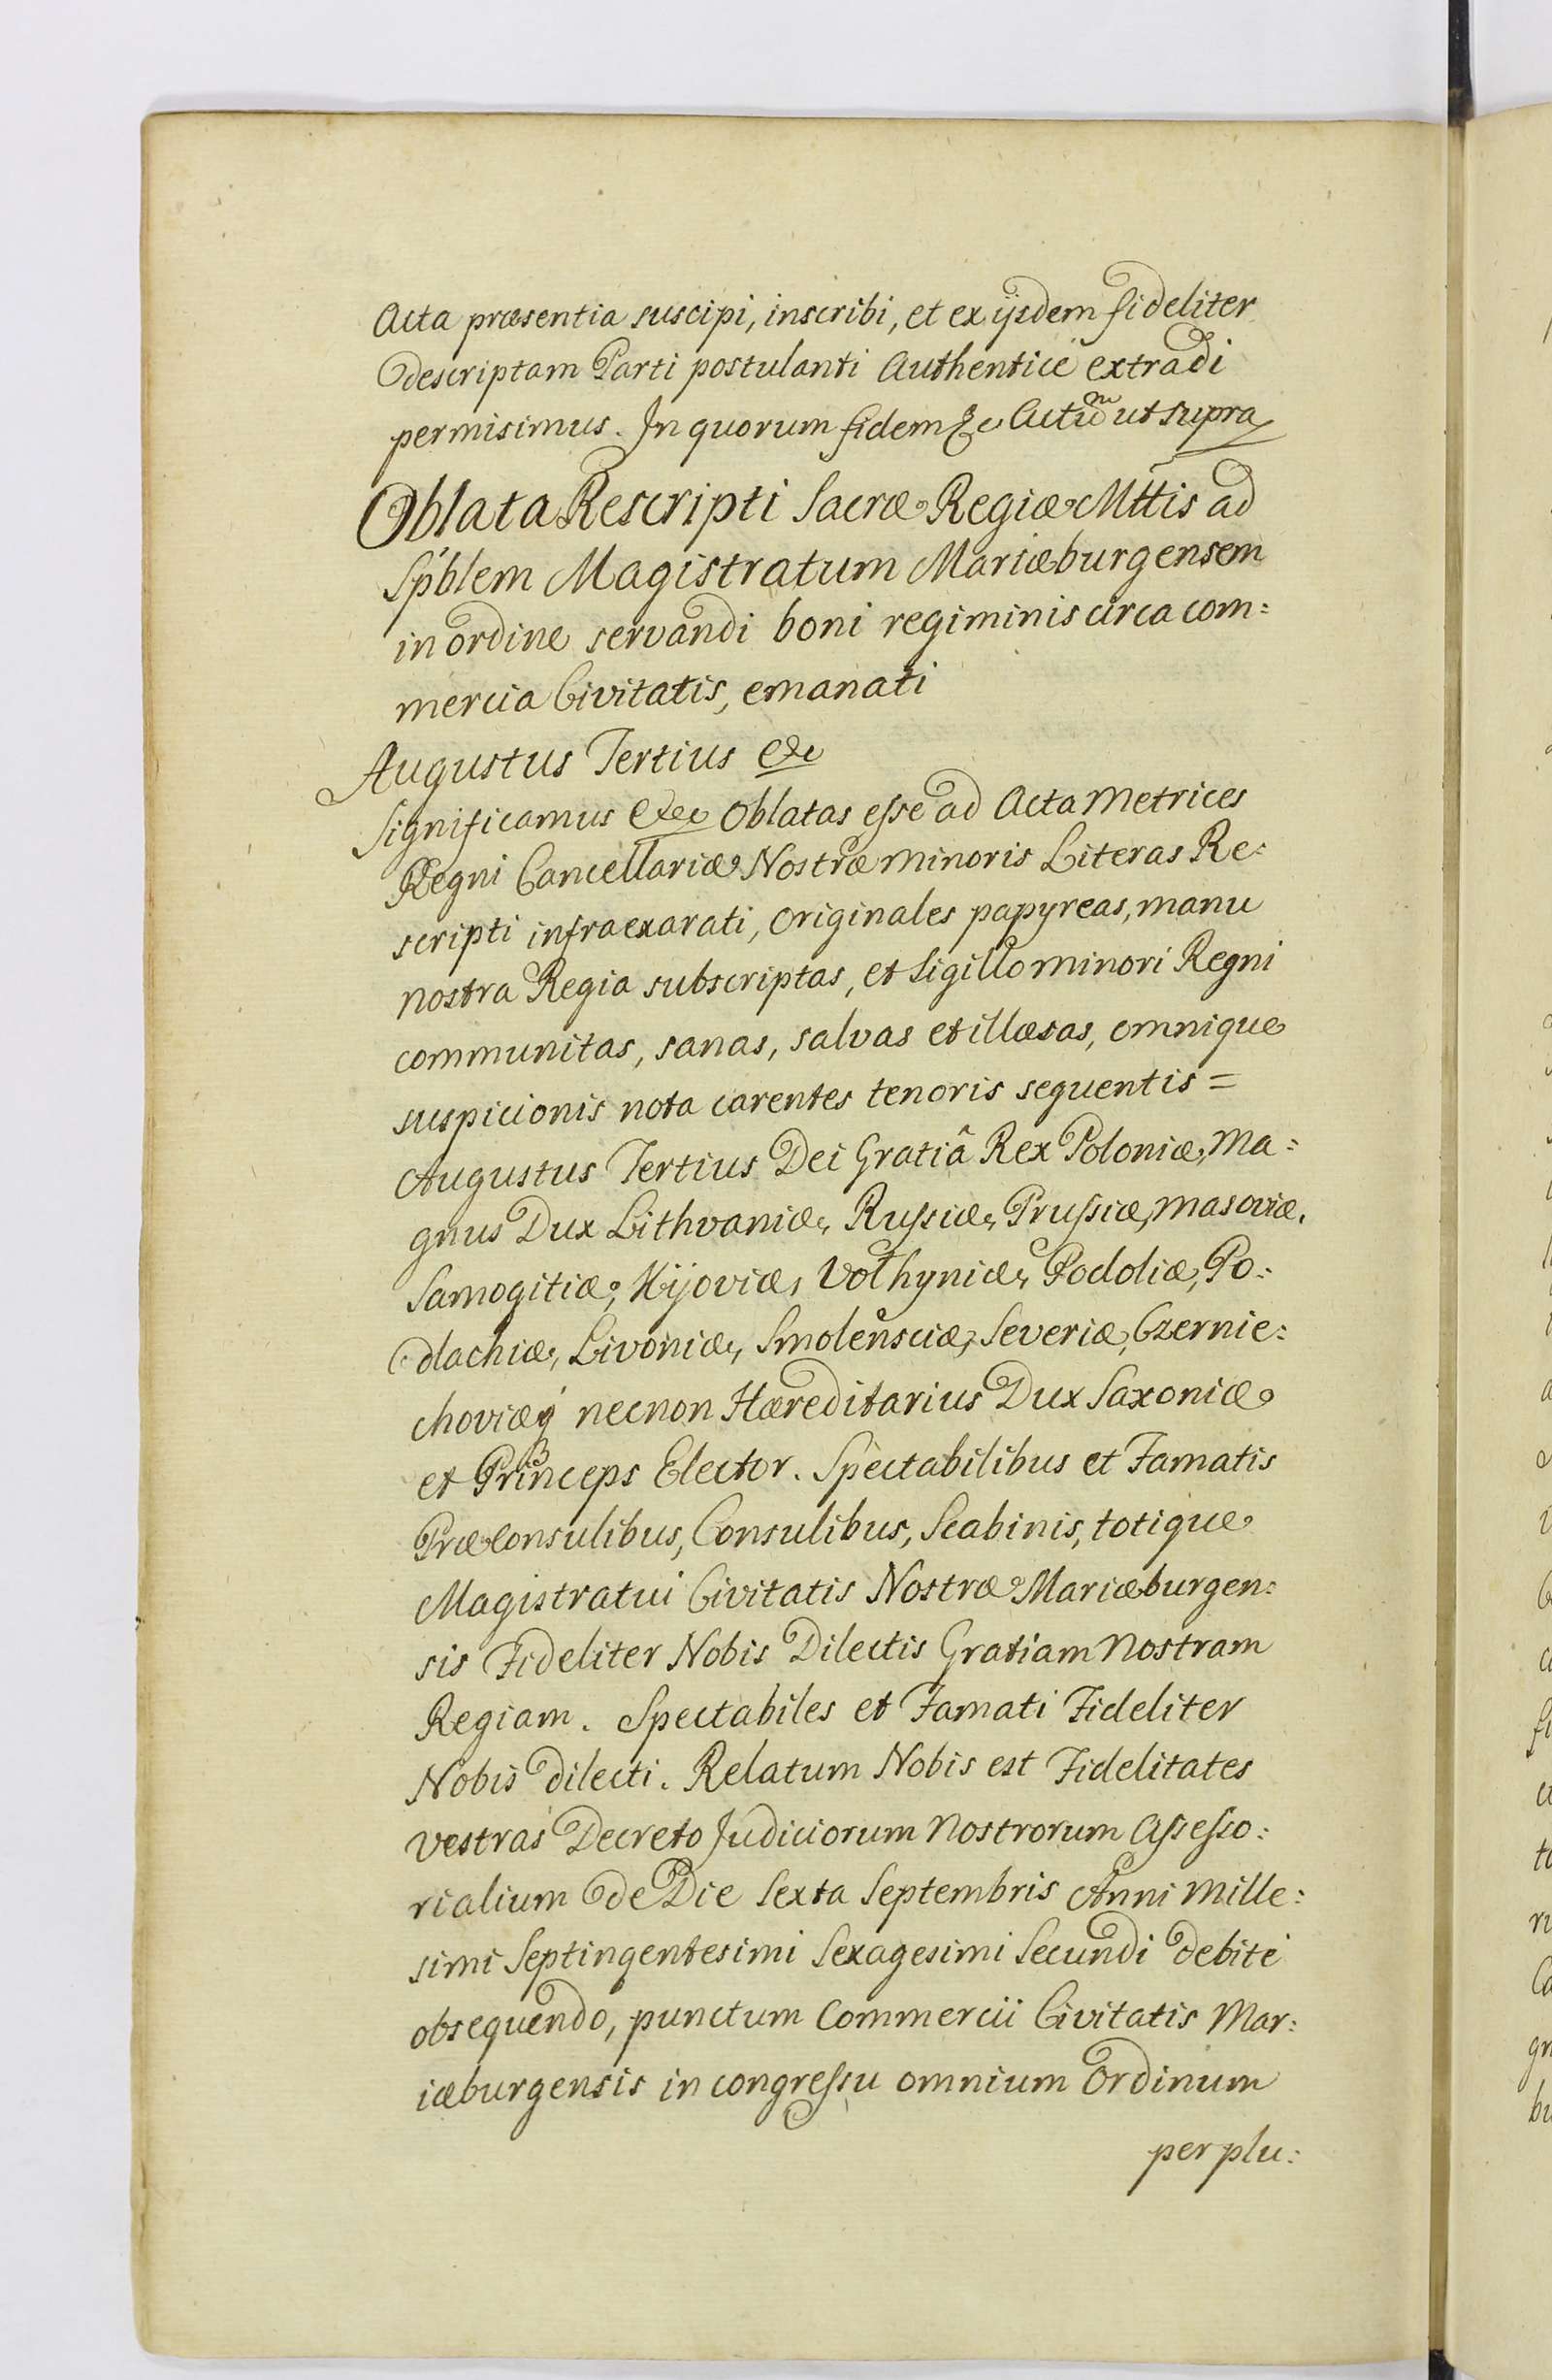 Acta præsentia suscipi, inscribi, et ex ijsdem fideliter
descriptam Parti postulanti Authenticè extradi
permisimus. In quorum fidem &c Actū ut supra
Oblata Rescripti Sacræ Regiæ Mttis ad
Spblem Magistratum Mariæburgensem
in ordine servandi boni regiminis circa com:
mercia Civitatis, emanati
Augustus Tertius &c
Significamus &c Oblatas esse ad Acta Metrices
Regni Cancellariæ Nostræ minoris Literas Re:
scripti infraexarati, Originales papyreas, manu
nostra Regia subscriptas, et Sigillo minori Regni
communitas, sanas, salvas et illæsas, omnique
suspicionis nota carentes tenoris sequentis =
Augustus Tertius Dei Gratiâ Rex Poloniæ, Ma:
gnus Dux Lithvaniæ, Russiæ, Prussiæ, Masoviæ,
Samogitiæ, Kijoviæ, Volhyniæ, Podoliæ, Po:
dlachiæ, Livoniæ, Smolensciæ, Severiæ, Czernie:
choviæq́ necnon Hæreditarius Dux Saxoniæ
et Princeps Elector. Spectabilibus et Famatis
Præconsulibus, Consulibus, Scabinis, totique
Magistratui Civitatis Nostræ Mariæburgen:
sis Fideliter Nobis Dilectis Gratiam Nostram
Regiam. Spectabiles et Famati Fideliter
Nobis dilecti. Relatum Nobis est Fidelitates
vestras Decreto Judiciorum Nostrorum Assesso:
rialium de Die Sexta Septembris Anni Mille:
simi Septingentesimi Sexagesimi Secundi debitè
obsequendo, punctum Commercii Civitatis Mar:
iæburgensis in congressu omnium Ordinum
per plu: